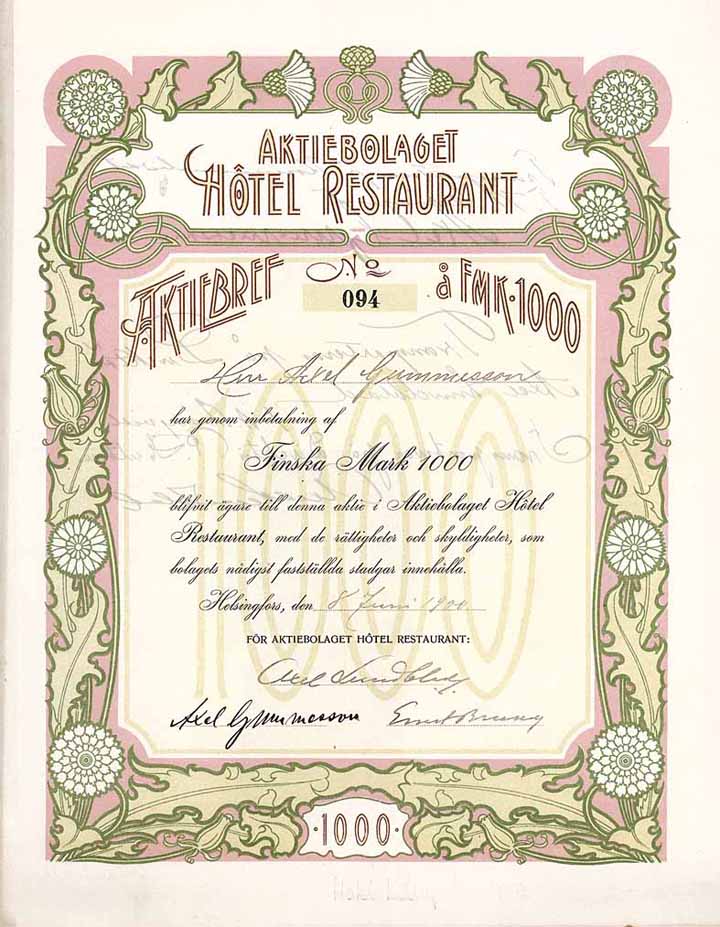 AKTIEBOLAGET
HÔTEL RESTAURANT
AKTIEBREF
No
094
å FMK·1000
Herr Axel Gummesson
har genom inbetalning af
Finska Mark 1000
blifvit ägare till denna aktie i Aktiebolaget Hôtel
Restaurant, med de rättigheter och skyldigheter, som
bolagets nådigst fastställda stadgar innehålla.
Helsingfors, den 8 Juni 1900
FÖR AKTIEBOLAGET HÔTEL RESTAURANT:
Axel Lundblad
Axel Gummesson Ernst
·1000·